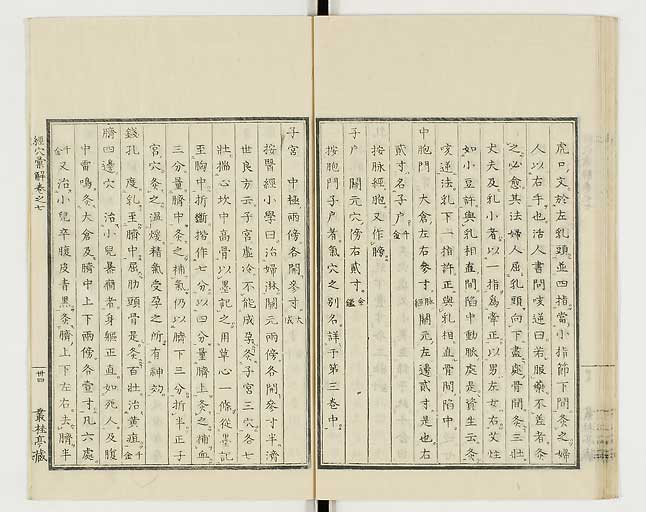 虎口文於左乳頭並四指當小指節下間灸之婦
人以右手也活人書問咳逆曰若服藥不差者灸
之必愈其法婦人屈乳頭向下盡處骨間灸三壯
丈夫及乳小者以一指為率正以男左女右艾炷
如小豆許與乳相直間陷中動脈處是資生云灸
咳逆法乳下一指許正與乳相直骨間陷中
中胞門 大倉左右參寸脈經關元左邊貳寸是也右
貳寸名子户千金
按脉經胞又作膀
子户 關元穴傍右貳寸金鑑
按胞門子户者氣穴之別名詳于第三卷中
子宮 中極兩傍各開參寸大成
按醫經小學曰治婦淋關元兩傍各開參寸半濟
世良方云子宮虛冷不能成孕灸子宮三穴各七
壯揣心坎中高骨以墨記之用草心一條從墨記
至胸中折斷掐作七分以四分量臍上灸之補血
三分量臍中灸之補氣仍以臍下三分折半正子
宮穴灸之溫煖精氣受孕之所有神効
錢孔 度乳至臍中屈肋頭骨是灸百壯治黃疸千金
臍四邊穴 治小兒暴癇者身軀正直如死人及腹
中雷鳴灸大倉及臍中上下兩傍各壹寸凡六處
千金又治小兒卒腹皮青黑灸臍上下左右去臍半
經穴彙解卷之七
卅四
叢桂亭藏